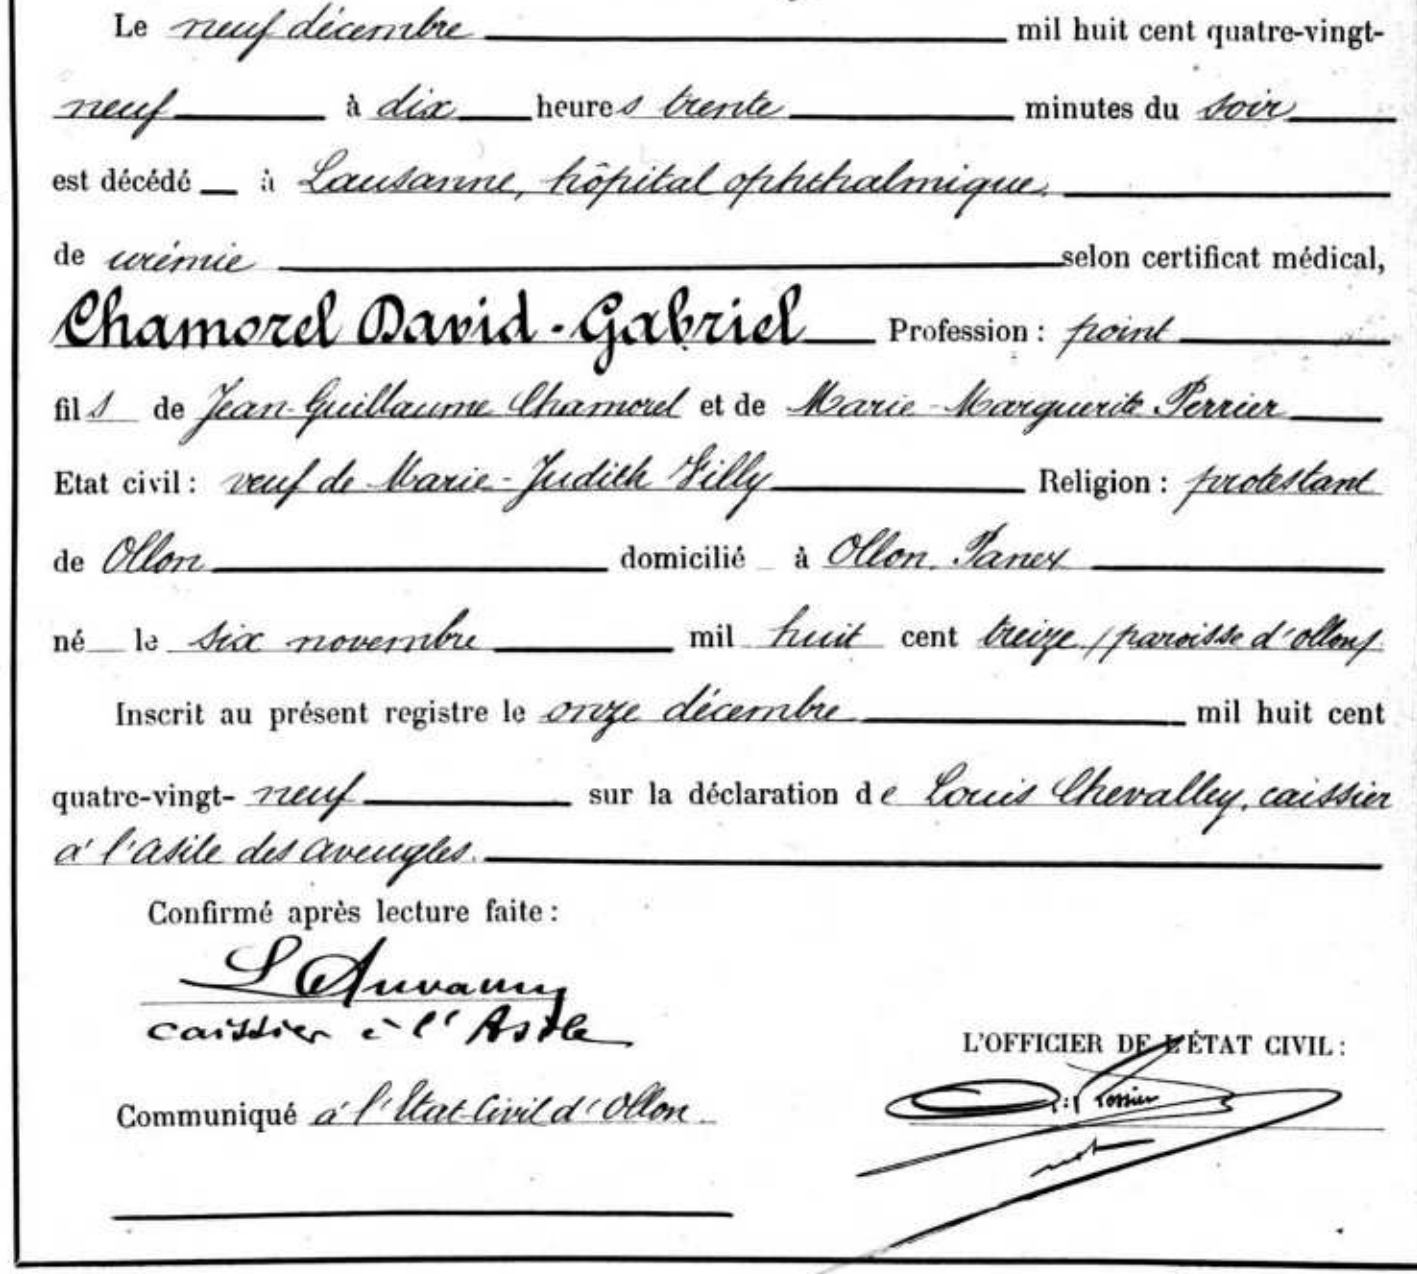 Le neuf décembre mil huit cent quatre-vingt-
neuf à dix heures trente minutes du soir
est décédé à Lausanne, hôpital ophthalmique.
de urémie selon certificat médical,
Chamorel David-Gabriel Profession : point
fils de Jean-Guillaume Chamorel et de Marie-Marguerite Perrier
Etat civil : veuf de Marie-Judith Villy Religion : protestant
de Ollon domicilié à Ollon. Panex
né le six novembre mil huit cent treize (paroisse d'ollon)
Inscrit au présent registre le onze décembre mil huit cent
quatre-vingt-neuf sur la déclaration de Louis Chevalley, caissier
à l'asile des aveugles.
Confirmé après lecture faite :
caissier à l'Asile
L'OFFICIER DE L'ÉTAT CIVIL :
Communiqué à l'Etat-Civil d'Ollon